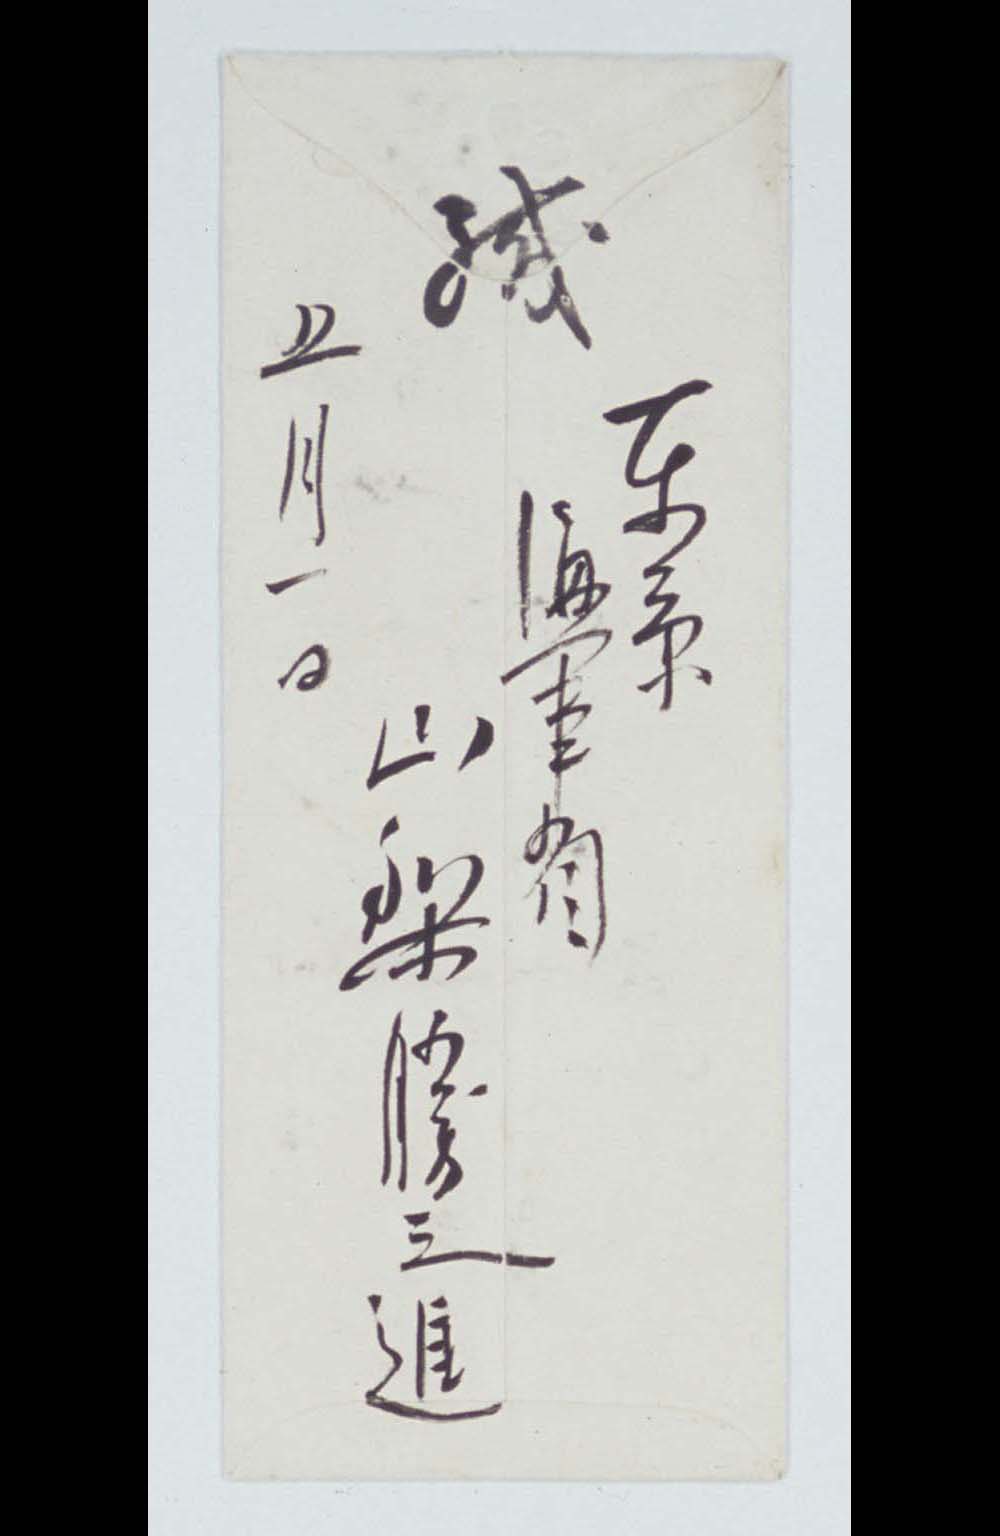 緘
東京
海軍省
山梨勝之進
五月一日